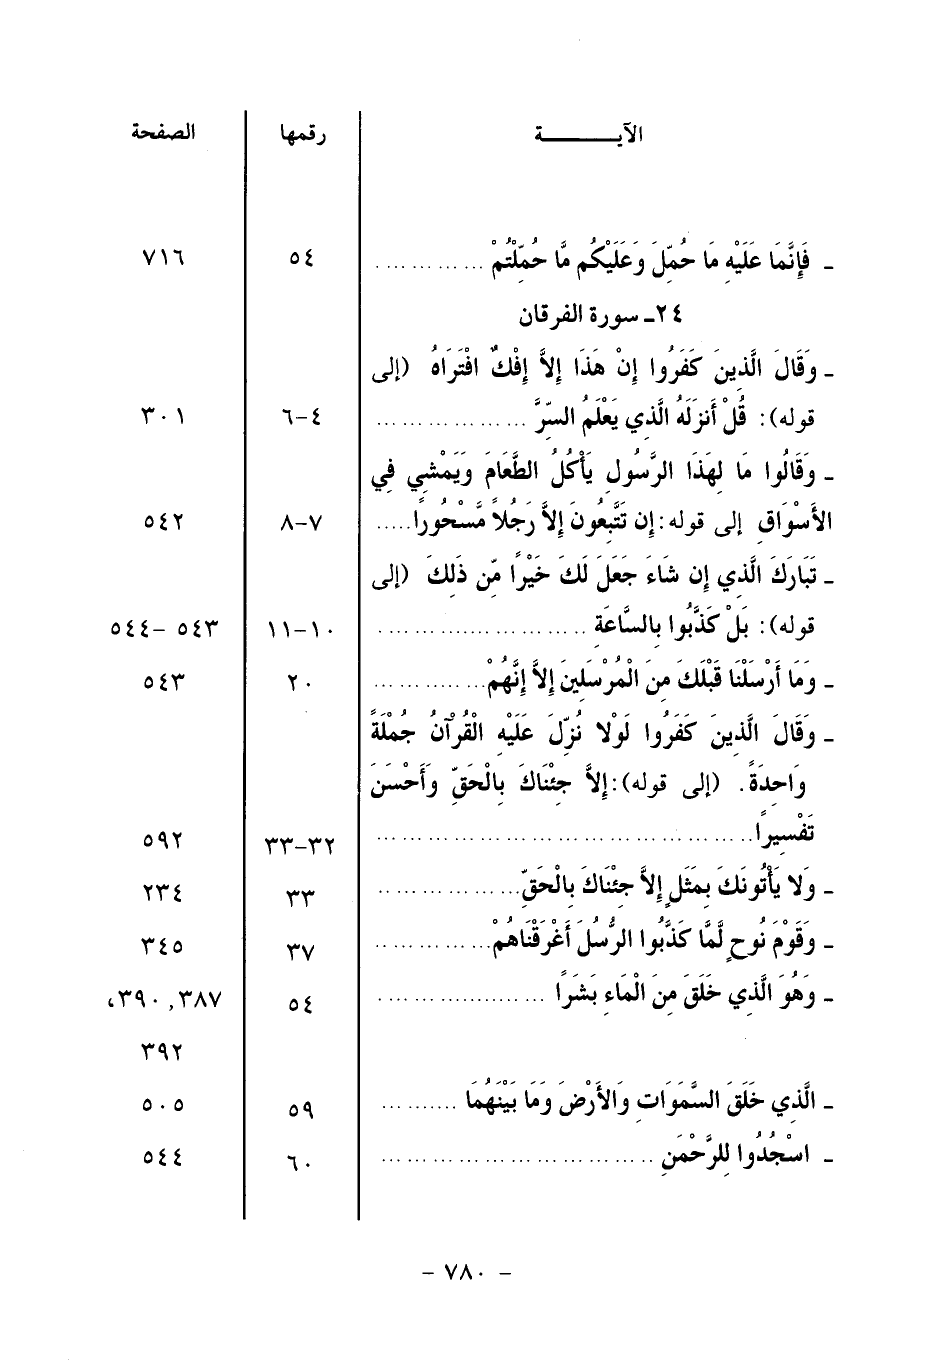 الآيـــــــة رقمها الصفحة
ـ فَإِنَّمَا عَلَيْهِ مَا حُمِّلَ وَعَلَيْكُم مَّا حُمِّلْتُمْ ............ ٥٤ ٧١٦
٢٤ـ سورة الفرقان
ـ وَقَالَ الَّذِينَ كَفَرُوا إِنْ هَذَا إِلاَّ إِفْكٌ افْتَرَاهُ (إلى
قوله): قُلْ أَنزَلَهُ الَّذِي يَعْلَمُ السِّرَّ .................. ٤-٦ ٣٠١
ـ وَقَالُوا مَا لِهَذَا الرَّسُولِ يَأْكُلُ الطَّعَامَ وَيَمْشِي فِي
الأَسْوَاقِ إلى قوله: إِن تَتَّبِعُونَ إِلاَّ رَجُلاً مَّسْحُورًا..... ٧-٨ ٥٤٢
ـ تَبَارَكَ الَّذِي إِن شَاءَ جَعَلَ لَكَ خَيْرًا مِّن ذَلِكَ (إلى
قوله): بَلْ كَذَّبُوا بِالسَّاعَةِ ........................ ١٠-١١ ٥٤٣ -٥٤٤
ـ وَمَا أَرْسَلْنَا قَبْلَكَ مِنَ الْمُرْسَلِينَ إِلاَّ إِنَّهُمْ............. ٢٠ ٥٤٣
ـ وَقَالَ الَّذِينَ كَفَرُوا لَوْلا نُزِّلَ عَلَيْهِ الْقُرْآنُ جُمْلَةً
وَاحِدَةً. (إلى قوله): إِلاَّ جِئْنَاكَ بِالْحَقِّ وَأَحْسَنَ
تَفْسِيرًا............................................ ٣٢-٣٣ ٥٩٢
ـ وَلا يَأْتُونَكَ بِمَثَلٍ إِلاَّ جِئْنَاكَ بِالْحَقِّ................. ٣٣ ٢٣٤
ـ وَقَوْمَ نُوحٍ لَّمَّا كَذَّبُوا الرُّسُلَ أَغْرَقْنَاهُمْ.............. ٣٧ ٣٤٥
ـ وَهُوَ الَّذِي خَلَقَ مِنَ الْمَاءِ بَشَرًا .................. ٥٤ ٣٨٧, ٣٩٠،
٣٩٢
ـ الَّذِي خَلَقَ السَّمَوَاتِ وَالأَرْضَ وَمَا بَيْنَهُمَا ........... ٥٩ ٥٠٥
ـ اسْجُدُوا لِلرَّحْمَنِ ................................ ٦٠ ٥٤٤
- ٧٨٠ -